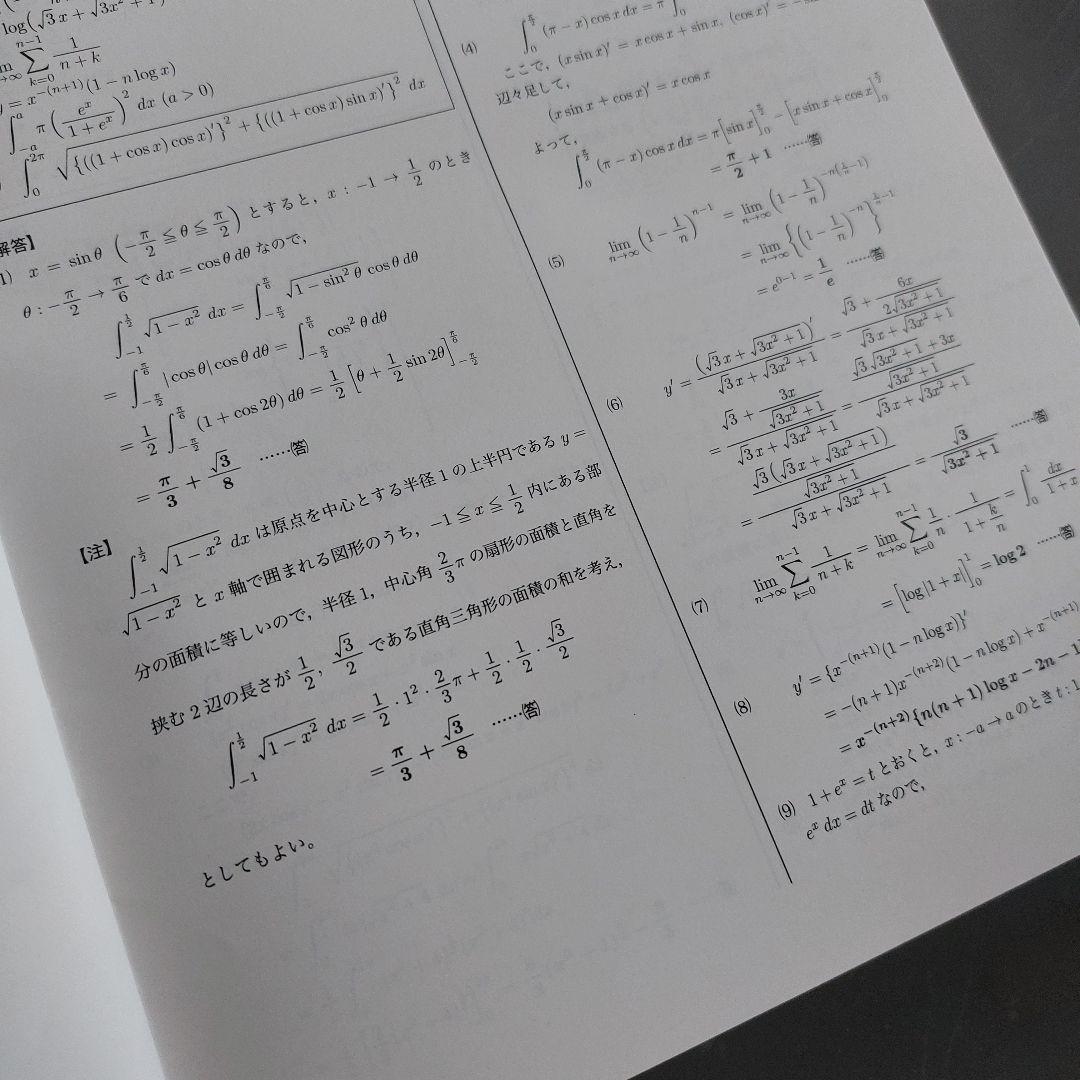 log(√3x + √(3x² + 1))
∑_{k=0}^{n−1} 1/(n+k)
= x^{−(n+1)}(1 − n log x)
∫_{−a}^{a} π(e^x/(1+e^x))² dx (a > 0)
∫_0^{2π} √({((1 + cos x) cos x)′}² + {((1 + cos x) sin x)′}²) dx
解答】
x = sin θ (−π/2 ≦ θ ≦ π/2) とすると, x : −1 → 1/2 のとき
θ : −π/2 → π/6 で dx = cos θ dθ なので,
∫_{−1}^{1/2} √(1 − x²) dx = ∫_{−π/2}^{π/6} √(1 − sin² θ) cos θ dθ
= ∫_{−π/2}^{π/6} |cos θ| cos θ dθ = ∫_{−π/2}^{π/6} cos² θ dθ
= 1/2 ∫_{−π/2}^{π/6} (1 + cos 2θ) dθ = 1/2 [θ + 1/2 sin 2θ]_{−π/2}^{π/6}
= π/3 + √3/8 ……(答)
【注】
∫_{−1}^{1/2} √(1 − x²) dx は原点を中心とする半径 1 の上半円である y =
√(1 − x²) と x 軸で囲まれる図形のうち, −1 ≦ x ≦ 1/2 内にある部
分の面積に等しいので, 半径 1, 中心角 2/3 π の扇形の面積と直角を
挟む 2 辺の長さが 1/2, √3/2 である直角三角形の面積の和を考え,
∫_{−1}^{1/2} √(1 − x²) dx = 1/2 · 1² · 2/3 π + 1/2 · 1/2 · √3/2
= π/3 + √3/8 ……(答)
としてもよい。
(4)
∫_0^{π/2} (π − x) cos x dx = π ∫_0
ここで, (x sin x)′ = x cos x + sin x, (cos x)′ = −
辺々足して,
(x sin x + cos x)′ = x cos x
よって,
∫_0^{π/2} (π − x) cos x dx = π[sin x]_0^{π/2} − [x sin x + cos x]_0^{π/2}
= π/2 + 1 ……(答)
(5)
lim_{n→∞} (1 − 1/n)^{n−1} = lim_{n→∞} (1 − 1/n)^{−n(1/n−1)}
= lim_{n→∞} {(1 − 1/n)^{−n}}^{1/n−1}
= e^{0−1} = 1/e ……(答)
(6)
y′ = (√3x + √(3x² + 1))′/(√3x + √(3x² + 1)) = (√3 + 6x/(2√(3x² + 1)))/(√3x + √(3x² + 1))
= (√3 + 3x/√(3x² + 1))/(√3x + √(3x² + 1)) = ((√3√(3x² + 1) + 3x)/√(3x² + 1))/(√3x + √(3x² + 1))
= (√3(√3x + √(3x² + 1))/√(3x² + 1))/(√3x + √(3x² + 1)) = √3/√(3x² + 1) ……(答)
(7)
lim_{n→∞} ∑_{k=0}^{n−1} 1/(n+k) = lim_{n→∞} ∑_{k=0}^{n−1} 1/n · 1/(1 + k/n) = ∫_0^1 dx/(1 + x
= [log|1 + x|]_0^1 = log 2 ……(答)
(8)
y′ = {x^{−(n+1)}(1 − n log x)}′
= −(n + 1)x^{−(n+2)}(1 − n log x) + x^{−(n+1)}
= x^{−(n+2)}{n(n + 1) log x − 2n − 1
(9) 1 + e^x = t とおくと, x : −a → a のとき t : 1
e^x dx = dt なので,